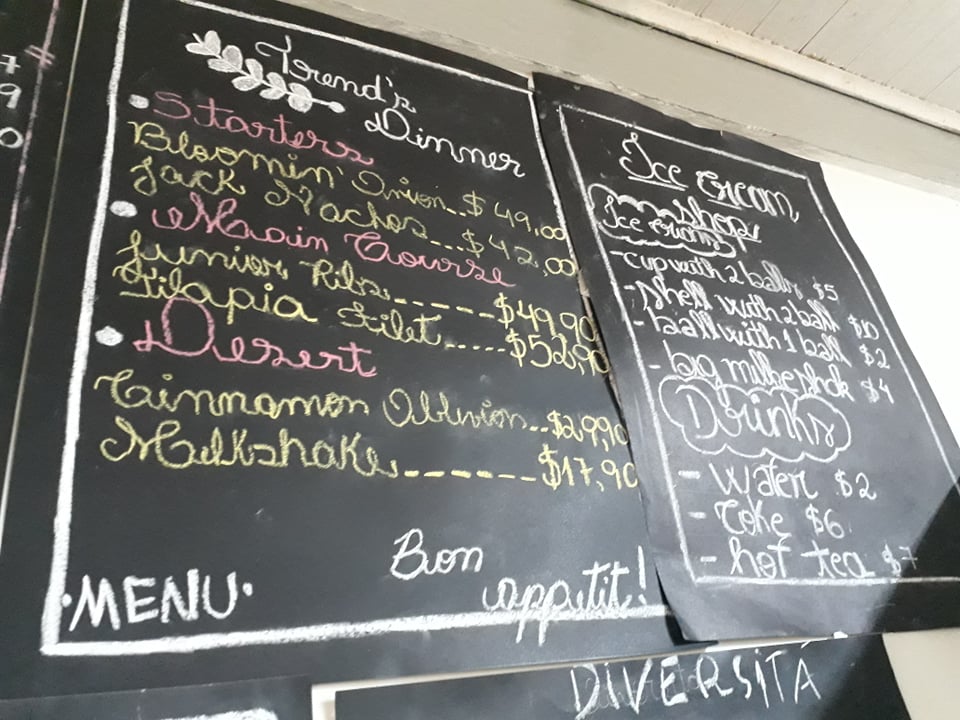 Trend's
Dinner
Starters
Bloomin' Onion..$49,00
Jack Nachos...$42,00
Maain Course
Junior Ribs------$49,90
Tilapia Filet.....$52,90
Desert
Cinnamon Oblivion..$29,90
Milkshake-------$17,90
Bon
appetit!
·MENU·
Ice Cream
shop
Ice Creams
-cup with 2 balls $5
-shell with 2 ball $10
-ball with 1 ball $2
-big milkeshak $4
Drinks
- water $2
- Coke $6
- hot tea $7
DIVERSITÁ
7
9
0